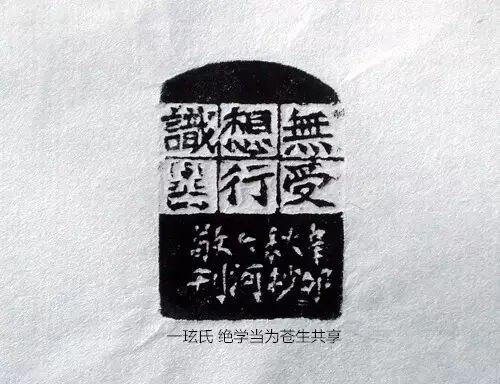 無受
想行
識
辛卯
秋杪
河
敬刊
一玹氏 绝学当为苍生共享